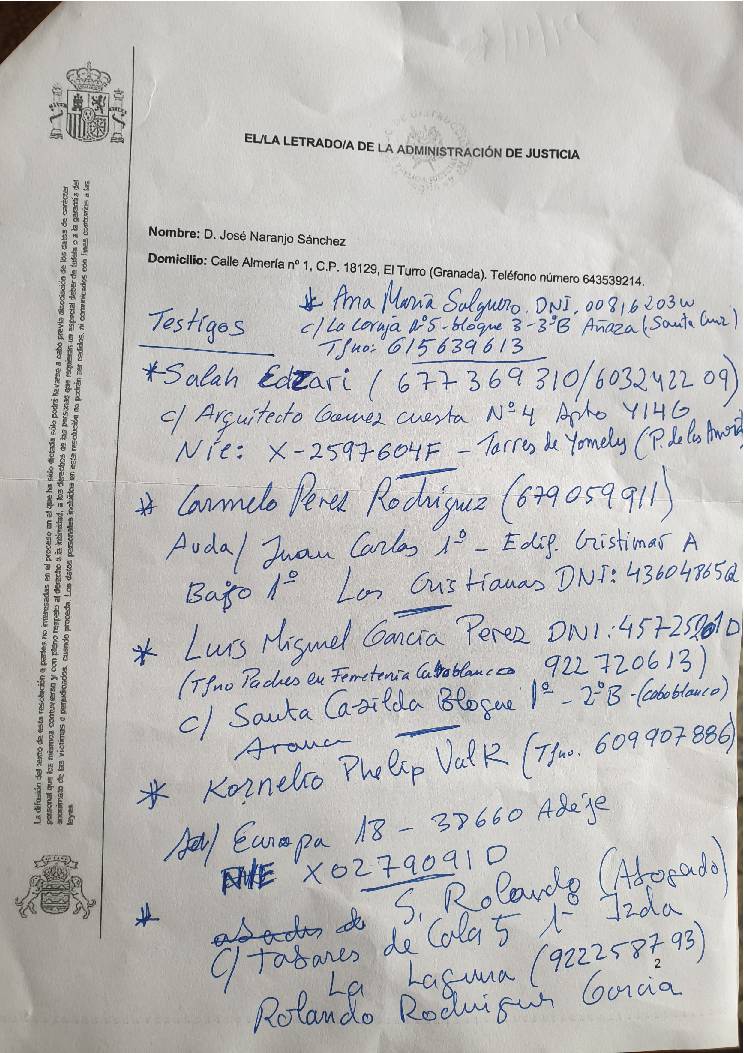 EL/LA LETRADO/A DE LA ADMINISTRACIÓN DE JUSTICIA
Nombre: D. José Naranjo Sánchez
Domicilio: Calle Almería nº 1, C.P. 18129, El Turro (Granada). Teléfono número 643539214.
Testigos
* Ana Maria Salguero. DNI. 00816203W
c/ La Coruja Nº5 - bloque 3 - 3ºB Añaza (Santa Cruz)
Tfno: 615639613
* Salah Edzari (677369310/603242209)
c/ Arquitecto Gomez cuesta Nº 4 Apto Y14G
Nie: X-2597604F - Torres de Yomely (P. de las Ameri
* Carmelo Perez Rodriguez (679059911)
Avda/ Juan Carlos 1º - Edif. Cristimar A
Bajo 1º Los Cristianos DNI: 43604865Q
* Luis Miguel Garcia Perez DNI: D
(Tfno Padres en Ferreteria Caboblanco 922 720613)
c/ Santa Casilda Bloque 1º - 2ºB - (caboblanco)
Arona
* Kornelio Phelip Valk (Tfno. 609907886)
Avd/ Europa 18 - 38660 Adeje
NIE X0279091D
* S. Rolando (Abogado)
C/ Tabares de Cala 5 1º Izda
La Laguna (922258793)
2
Rolando Rodriguez Garcia
La difusión del texto de esta resolución a partes no interesadas en el proceso en el que ha sido dictada sólo podrá llevarse a cabo previa disociación de los datos de carácter
personal que los mismos contuvieran y con pleno respeto al derecho a la intimidad, a los derechos de las personas que requieran un especial deber de tutela o a la garantía del
anonimato de las víctimas o perjudicados, cuando proceda. Los datos personales incluidos en esta resolución no podrán ser cedidos, ni comunicados con fines contrarios a las
leyes.